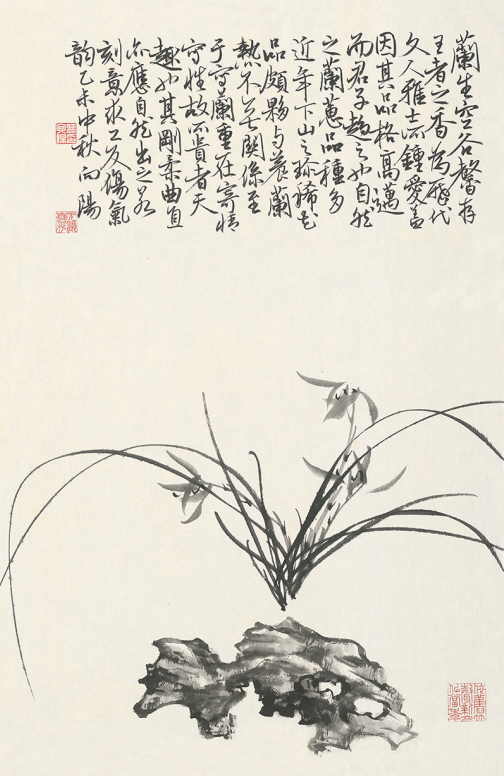 蘭生空谷馨存
王者之香為歷代
文人雅士所鍾愛蓋
因其品格高邁
而君子趣之如自然
之蘭蕙品種多
近年下山之珍稀
品頗夥與養蘭
熱不無關係至
于寫蘭重在寄情
守性故所貴者天
趣如其剛柔曲直
亦應自然出之若
刻意求工反傷氣
韻乙未中秋向陽